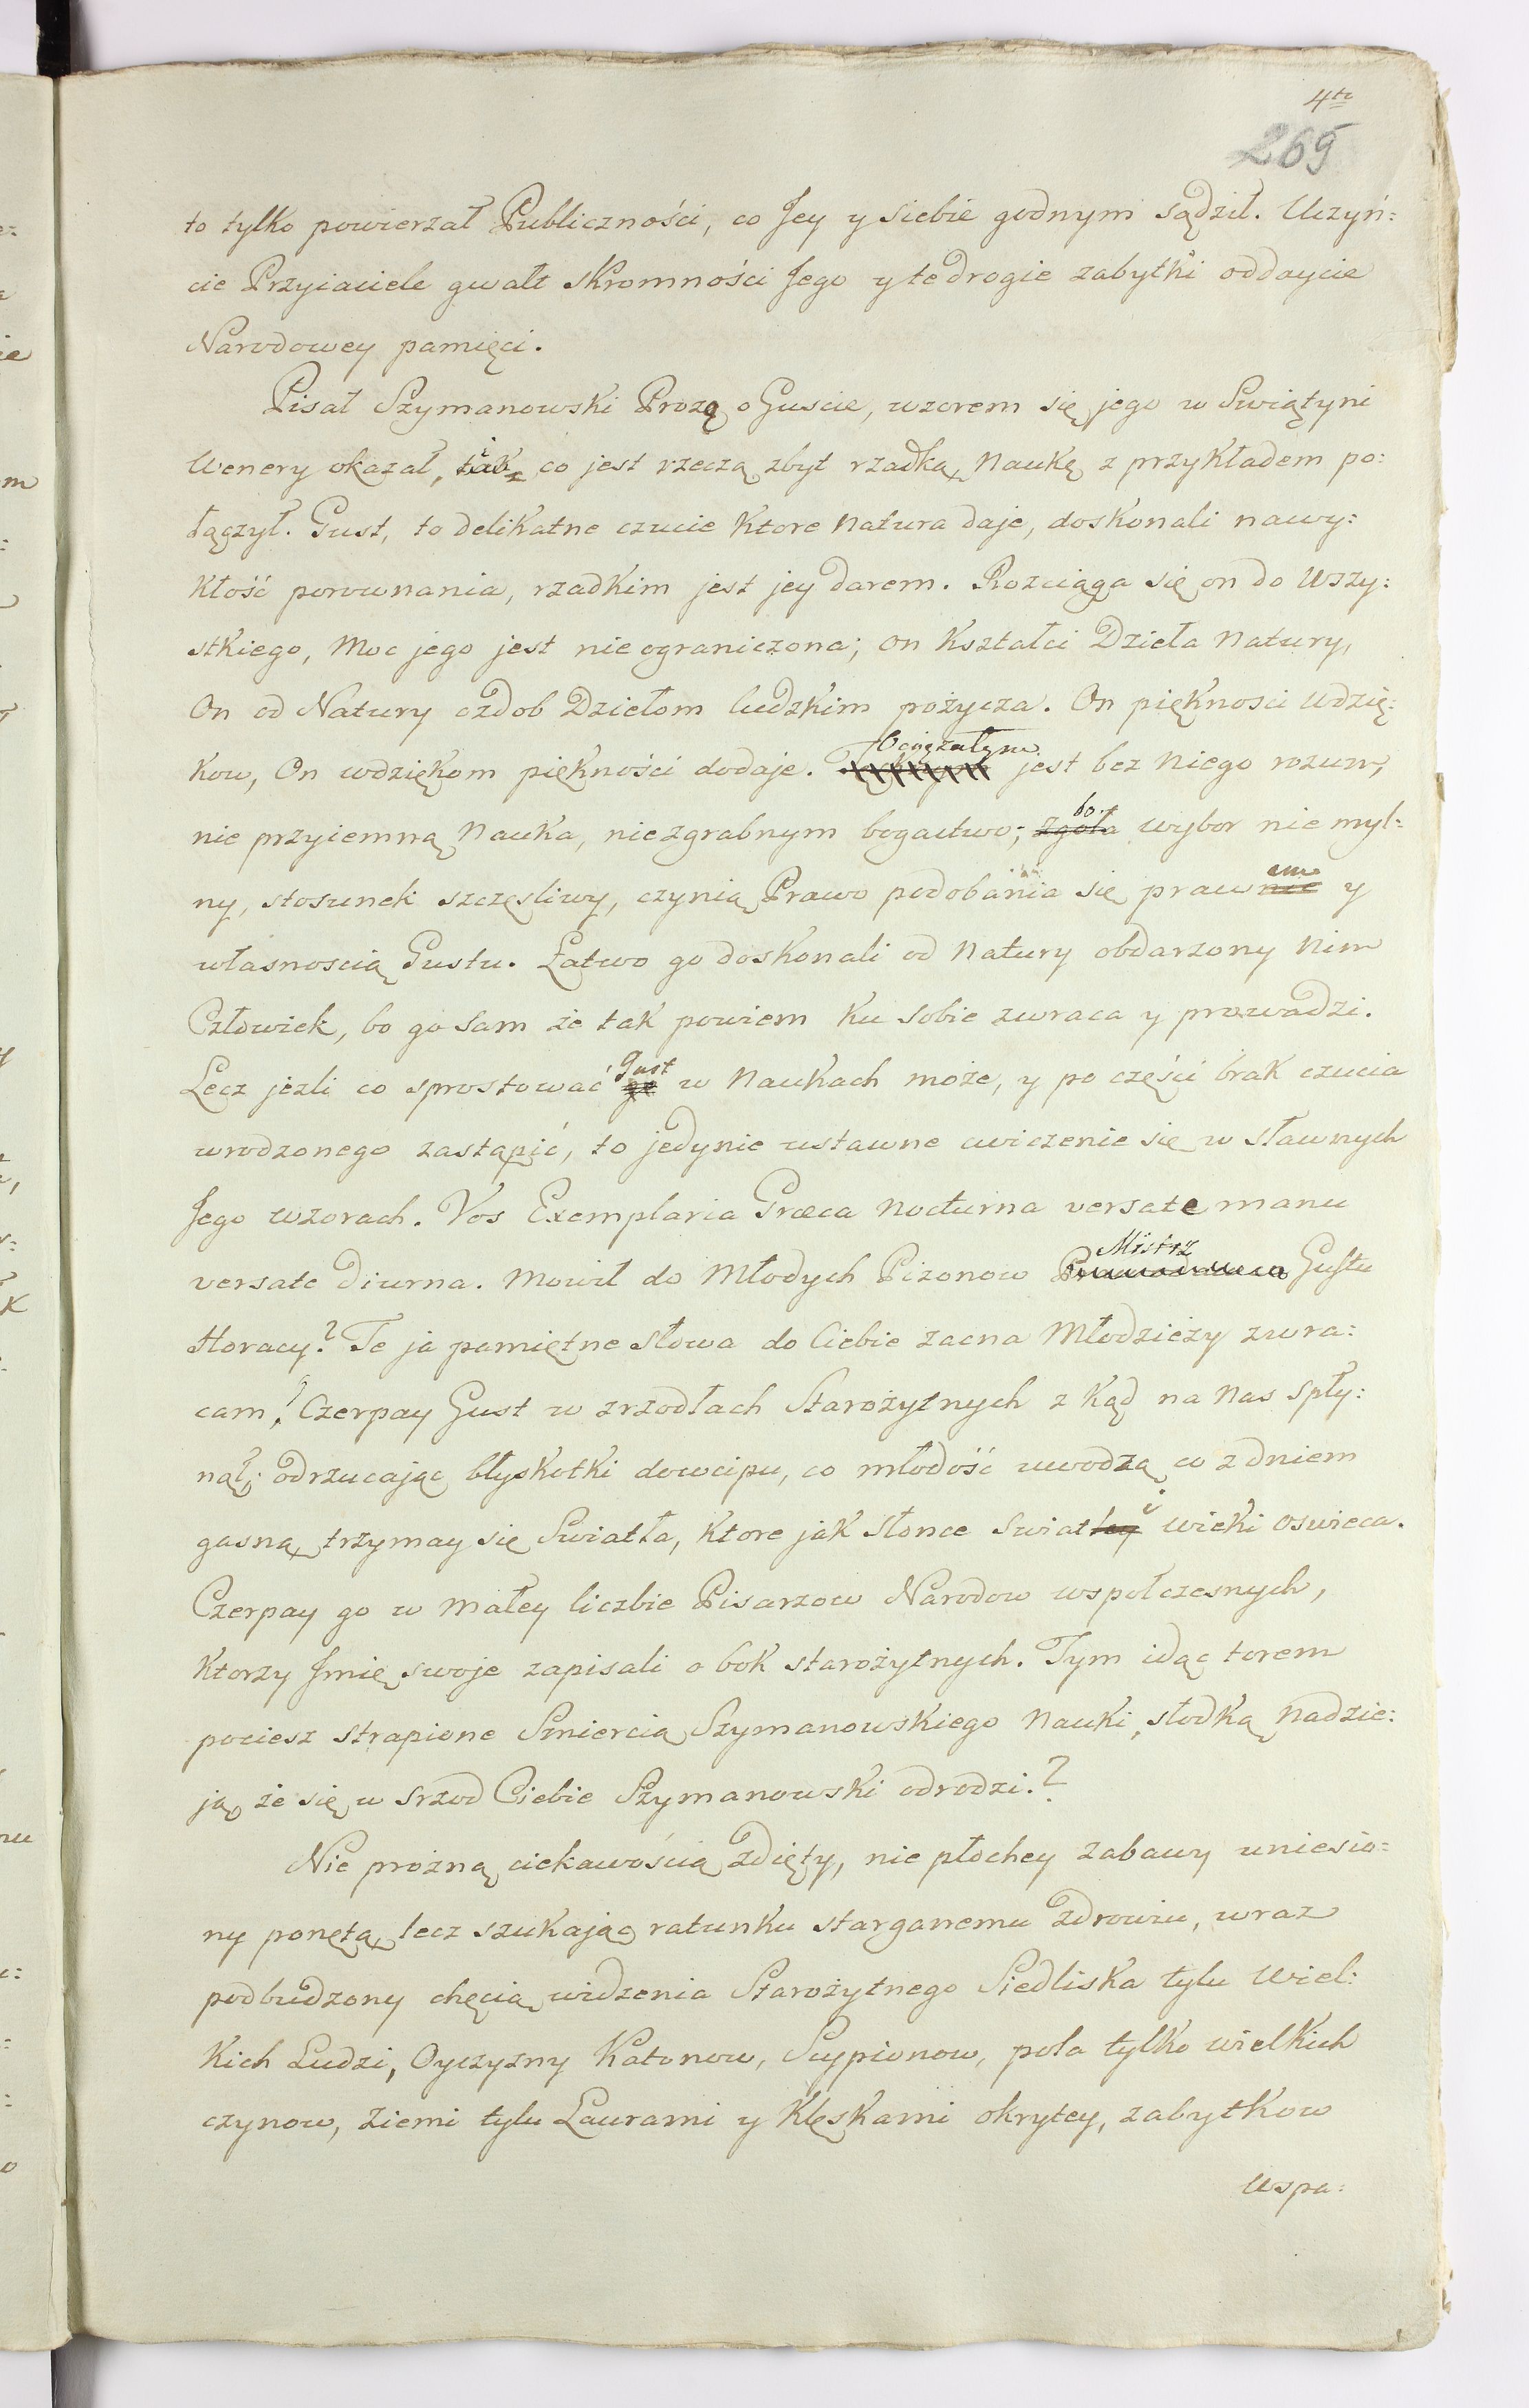 4te
269
to tylko powierzał Publiczności, co Jey y siebie godnym sądził. Uczyń:
cie Przyiaciele gwałt skromności Jego y te drogie zabytki oddaycie
Narodowey pamięci.
Pisał Szymanowski Prozą o Guscie, wzorem się jego w Swiątyni
Wenery okazał, tak, co jest rzeczą zbyt rzadką, Naukę z przykładem po:
łączył. Gust, to delikatne czucie ktore Natura daje, doskonali nawy:
kłość porownania, rzadkim jest jey darem. Rozciąga się on do Wszy:
stkiego, Moc jego jest nieograniczona; on kształci Dzieła Natury,
On od Natury ozdob Dziełom ludzkim pożycza. On pięknosci Wdzię:
kow, On wdziękom piękności dodaje. Ociężałym jest bez Niego rozum,
nie przyiemną Nauka, niezgrabnym bogactwo; zgoła bo wybor nie myl:
ny, stosunek szczęsliwy, czynią Prawo podobania się prawnie em y
własnoscią Gustu. Łatwo go doskonali od Natury obdarzony Nim
Człowiek, bo go sam że tak powiem ku sobie zwraca y prowadzi.
Lecz jezli co sprostować go Gust w Naukach może, y po części brak czucia
wrodzonego zastąpić, to jedynie ustawne cwiczenie się w sławnych
Jego wzorach. Vos Exemplaria Græca Nocturna versate manu
versate Diurna. Mowił do Młodych Pizonow Mistrz Gustu
Horacy? Te ja pamiętne słowa do Ciebie zacna Młodzieży zwra:
cam! Czerpay Gust w zrzodłach Starożytnych z kąd na Nas spły:
nął; odrzucając błyskotki dowcipu, co młodość uwodzą co z dniem
gasną, trzymay się Swiatła, ktore jak słonce swiat y wieki oswieca.
Czerpay go w małey liczbie Pisarzow Narodow wspołczesnych,
ktorzy Jmię swoje zapisali o bok starożytnych. Tym idąc torem
pociesz strapione Smiercią Szymanowskiego Nauki, słodką Nadzie:
ją, że się w srzod Ciebie Szymanowski odrodzi.?
Nie prożną ciekawością zdięty, nie płochey zabawy uniesio:
ny ponętą, lecz szukając ratunku starganemu zdrowiu, wraz
podbudzony chęcią widzenia Starożytnego Siedliska tylu Wiel:
kich Ludzi, Oyczyzny Katonow, Scypionow, pola tylko wielkich
czynow, Ziemi tylu Laurami y klęskami okrytey, zabytkow
Wspa: